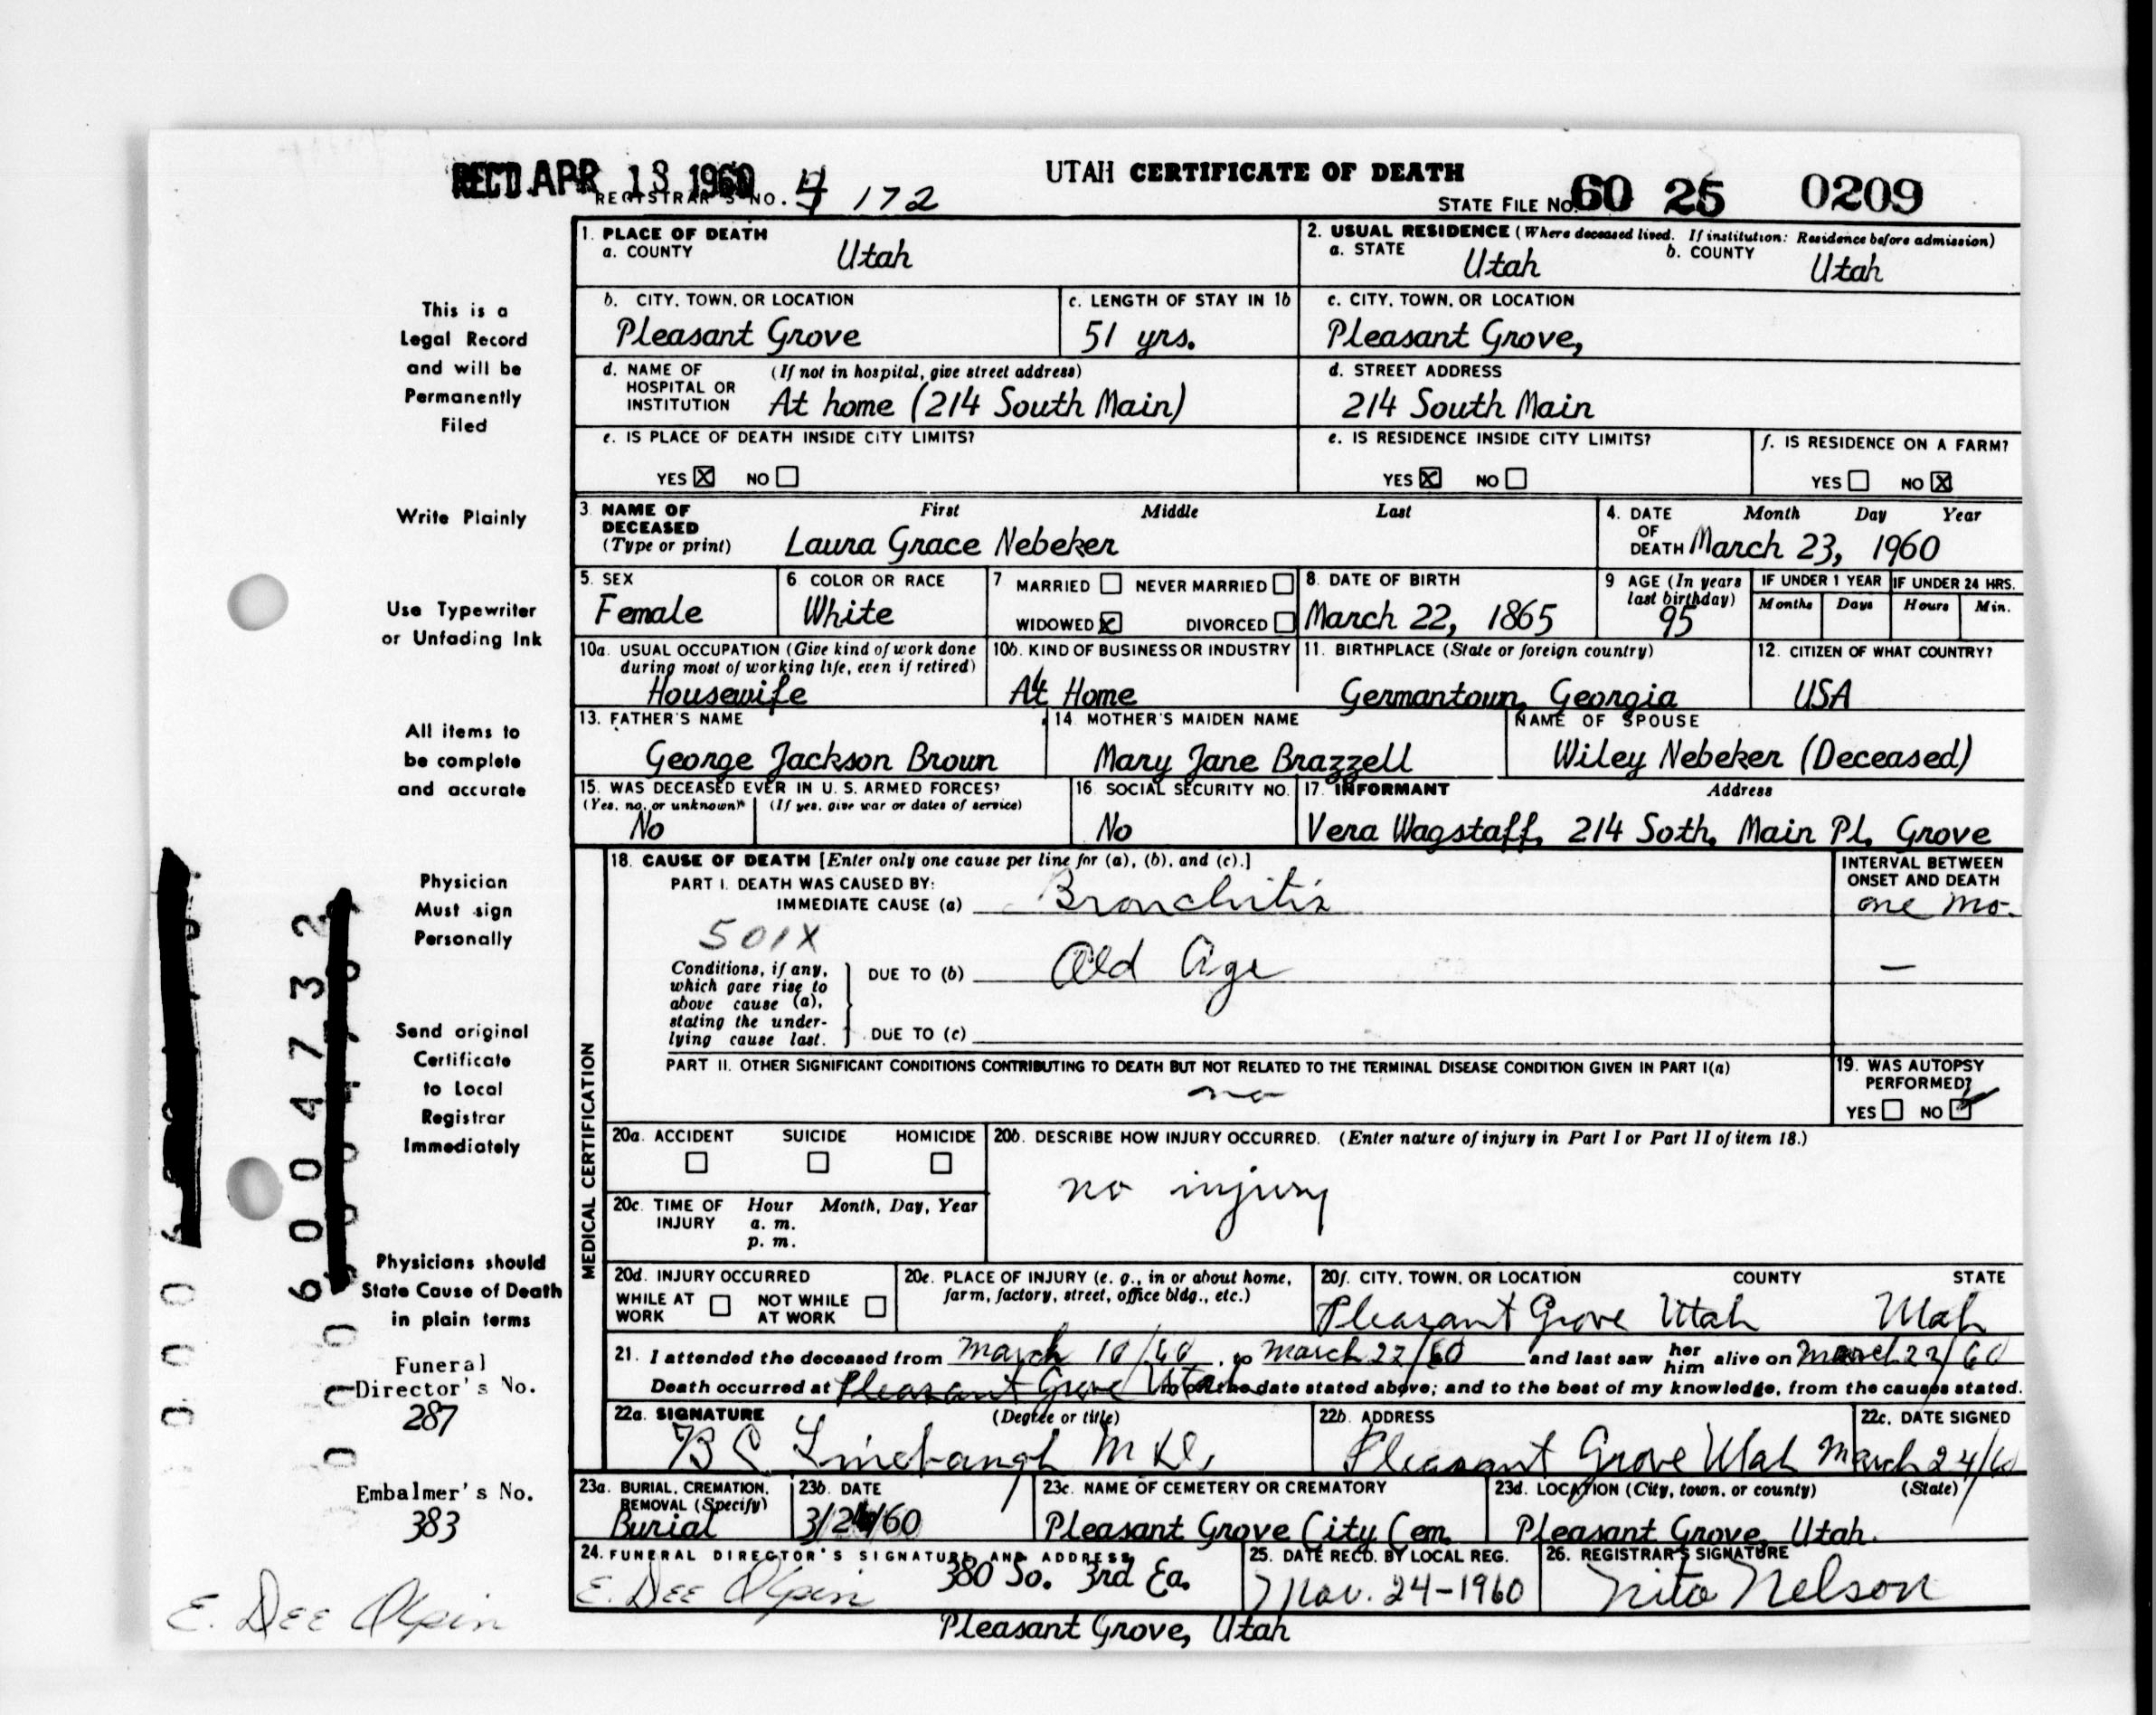 REC'D. APR 13 1960
REGISTRAR'S NO. 4 172
UTAH CERTIFICATE OF DEATH
STATE FILE NO. 60 25 0209
1. PLACE OF DEATH
a. COUNTY Utah
2. USUAL RESIDENCE (Where deceased lived. If institution: Residence before admission)
a. STATE Utah b. COUNTY Utah
b. CITY, TOWN, OR LOCATION
Pleasant Grove
c. LENGTH OF STAY IN 1b
51 yrs.
c. CITY, TOWN, OR LOCATION
Pleasant Grove,
d. NAME OF HOSPITAL OR INSTITUTION (If not in hospital, give street address)
At home (214 South Main)
d. STREET ADDRESS
214 South Main
e. IS PLACE OF DEATH INSIDE CITY LIMITS?
YES X NO
e. IS RESIDENCE INSIDE CITY LIMITS?
YES X NO
f. IS RESIDENCE ON A FARM?
YES NO X
3. NAME OF DECEASED (Type or print)
First Middle Last
Laura Grace Nebeker
4. DATE OF DEATH Month Day Year
March 23, 1960
5. SEX
Female
6. COLOR OR RACE
White
7 MARRIED NEVER MARRIED
WIDOWED X DIVORCED
8. DATE OF BIRTH
March 22, 1865
9 AGE (In years last birthday)
95
IF UNDER 1 YEAR IF UNDER 24 HRS.
Months Days Hours Min.
10a. USUAL OCCUPATION (Give kind of work done during most of working life, even if retired)
Housewife
10b. KIND OF BUSINESS OR INDUSTRY
At Home
11. BIRTHPLACE (State or foreign country)
Germantown, Georgia
12. CITIZEN OF WHAT COUNTRY?
USA
13. FATHER'S NAME
George Jackson Brown
14. MOTHER'S MAIDEN NAME
Mary Jane Brazzell
NAME OF SPOUSE
Wiley Nebeker (Deceased)
15. WAS DECEASED EVER IN U. S. ARMED FORCES?
(Yes, no, or unknown) (If yes, give war or dates of service)
No
16. SOCIAL SECURITY NO.
No
17. INFORMANT Address
Vera Wagstaff, 214 Soth, Main Pl. Grove
MEDICAL CERTIFICATION
18. CAUSE OF DEATH [Enter only one cause per line for (a), (b), and (c).]
PART I. DEATH WAS CAUSED BY:
IMMEDIATE CAUSE (a) Bronchitis
501X
Conditions, if any, which gave rise to above cause (a), stating the underlying cause last.
DUE TO (b) Old Age
DUE TO (c)
INTERVAL BETWEEN ONSET AND DEATH
one mo.
—
PART II. OTHER SIGNIFICANT CONDITIONS CONTRIBUTING TO DEATH BUT NOT RELATED TO THE TERMINAL DISEASE CONDITION GIVEN IN PART I(a)
no
19. WAS AUTOPSY PERFORMED?
YES NO
20a. ACCIDENT SUICIDE HOMICIDE
20b. DESCRIBE HOW INJURY OCCURRED. (Enter nature of injury in Part I or Part II of item 18.)
no injury
20c. TIME OF INJURY Hour Month, Day, Year
a. m.
p. m.
20d. INJURY OCCURRED
WHILE AT WORK NOT WHILE AT WORK
20e. PLACE OF INJURY (e. g., in or about home, farm, factory, street, office bldg., etc.)
20f. CITY, TOWN, OR LOCATION COUNTY STATE
Pleasant Grove Utah Utah
21. I attended the deceased from March 10/60, to March 22/60 and last saw her him alive on March 22/60
Death occurred at Pleasant Grove Utah on the date stated above; and to the best of my knowledge, from the causes stated.
22a. SIGNATURE (Degree or title)
B C Linebaugh M.D.
22b. ADDRESS
Pleasant Grove Utah
22c. DATE SIGNED
March 24/60
23a. BURIAL, CREMATION, REMOVAL (Specify)
Burial
23b. DATE
3/26/60
23c. NAME OF CEMETERY OR CREMATORY
Pleasant Grove City Cem.
23d. LOCATION (City, town, or county) (State)
Pleasant Grove, Utah.
24. FUNERAL DIRECTOR'S SIGNATURE AND ADDRESS
E. Dee Olpin 380 So. 3rd Ea.
Pleasant Grove, Utah
25. DATE RECD. BY LOCAL REG.
Mar. 24-1960
26. REGISTRAR'S SIGNATURE
Nita Nelson
This is a
Legal Record
and will be
Permanently
Filed
Write Plainly
Use Typewriter
or Unfading Ink
All items to
be complete
and accurate
Physician
Must sign
Personally
Send original
Certificate
to Local
Registrar
Immediately
Physicians should
State Cause of Death
in plain terms
Funeral
Director's No.
287
Embalmer's No.
383
E. Dee Olpin
6004732